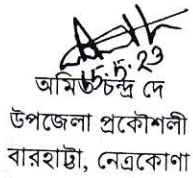 15.5.23
অমিত চন্দ্র দে
উপজেলা প্রকৌশলী
বারহাট্টা, নেত্রকোণা